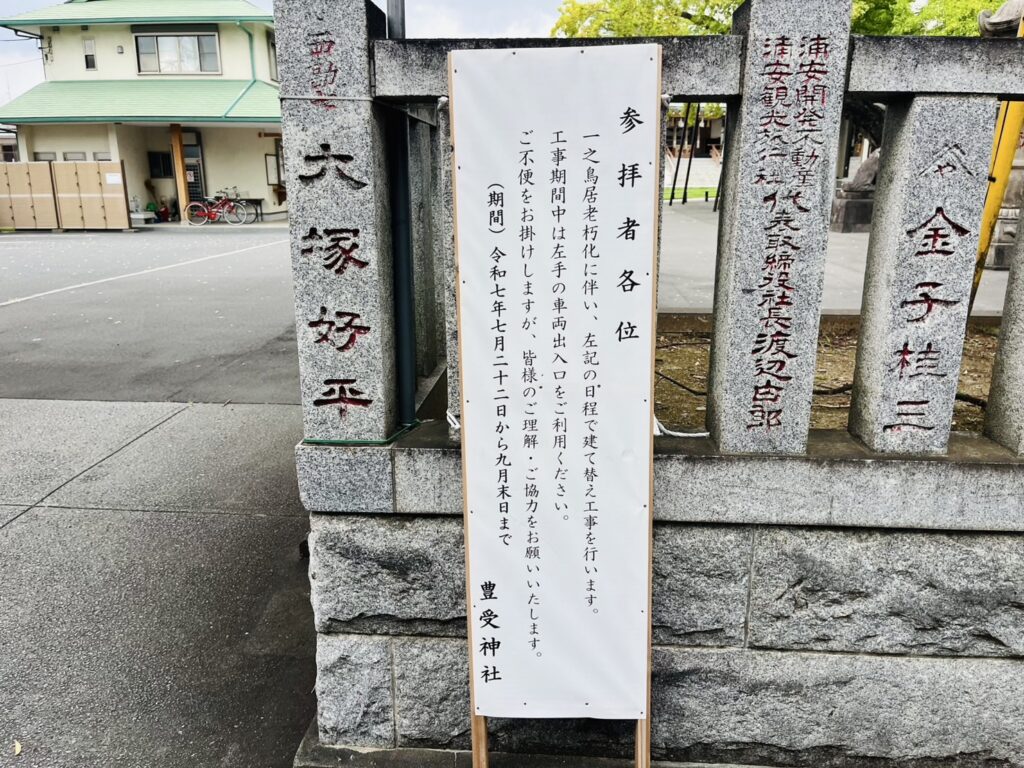 参拝者各位
一之鳥居老朽化に伴い、左記の日程で建て替え工事を行います。
工事期間中は左手の車両出入口をご利用ください。
ご不便をお掛けしますが、皆様のご理解・ご協力をお願いいたします。
（期間）令和七年七月二十二日から九月末日まで
豊受神社
金子桂三
浦安開発不動産
浦安観光旅行社
代表取締役社長渡辺吉郎
大塚好平